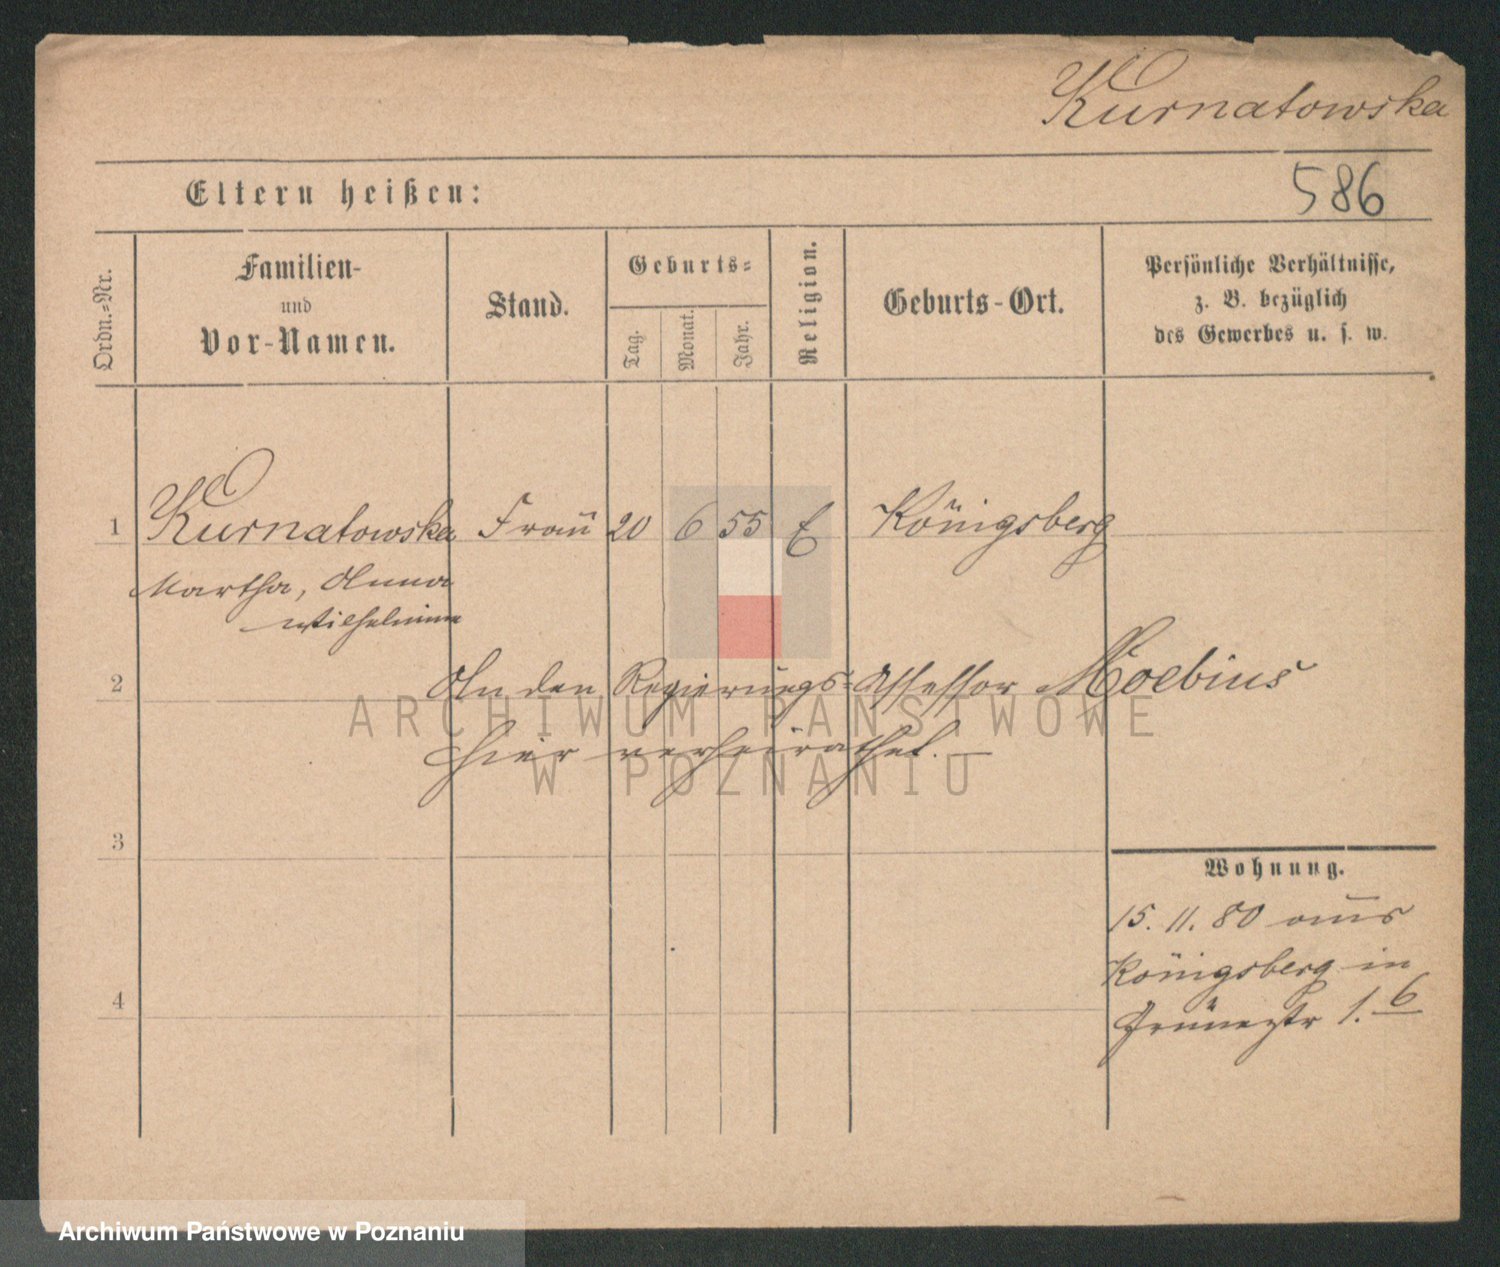 Kurnatowska
Eltern heißen:
586
Ordn.-Nr.
Familien-
und
Vor-Namen.
Stand.
Geburts-
Tag.
Monat.
Jahr.
Religion.
Geburts-Ort.
Persönliche Verhältnisse,
z. B. bezüglich
des Gewerbes u. s. w.
1 Kurnatowska Frau 20 6 55 E Königsberg
Martha, Anna
Wilhelmine
2 An den Regierungs-Assessor Moebius
hier verheirathet.
3
4
Wohnung.
15. 11. 80 aus
Königsberg in
Grünestr 1. 6
ARCHIWUM PAŃSTWOWE
W POZNANIU
Archiwum Państwowe w Poznaniu